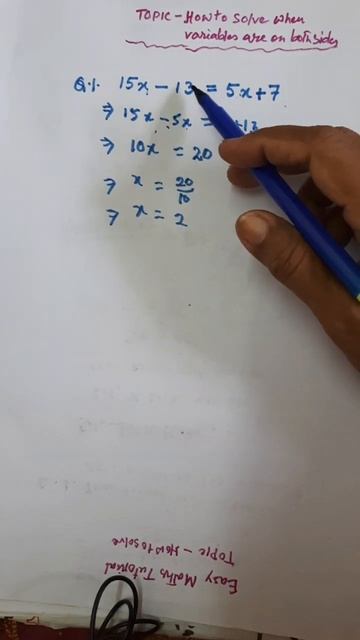 TOPIC - How to solve when
variables are on both sides
Q.1. 15x - 13 = 5x + 7
⇒ 15x - 5x = +13
⇒ 10x = 20
⇒ x = 20/10
⇒ x = 2
TOPIC - How to solve
Easy Maths Tutorial